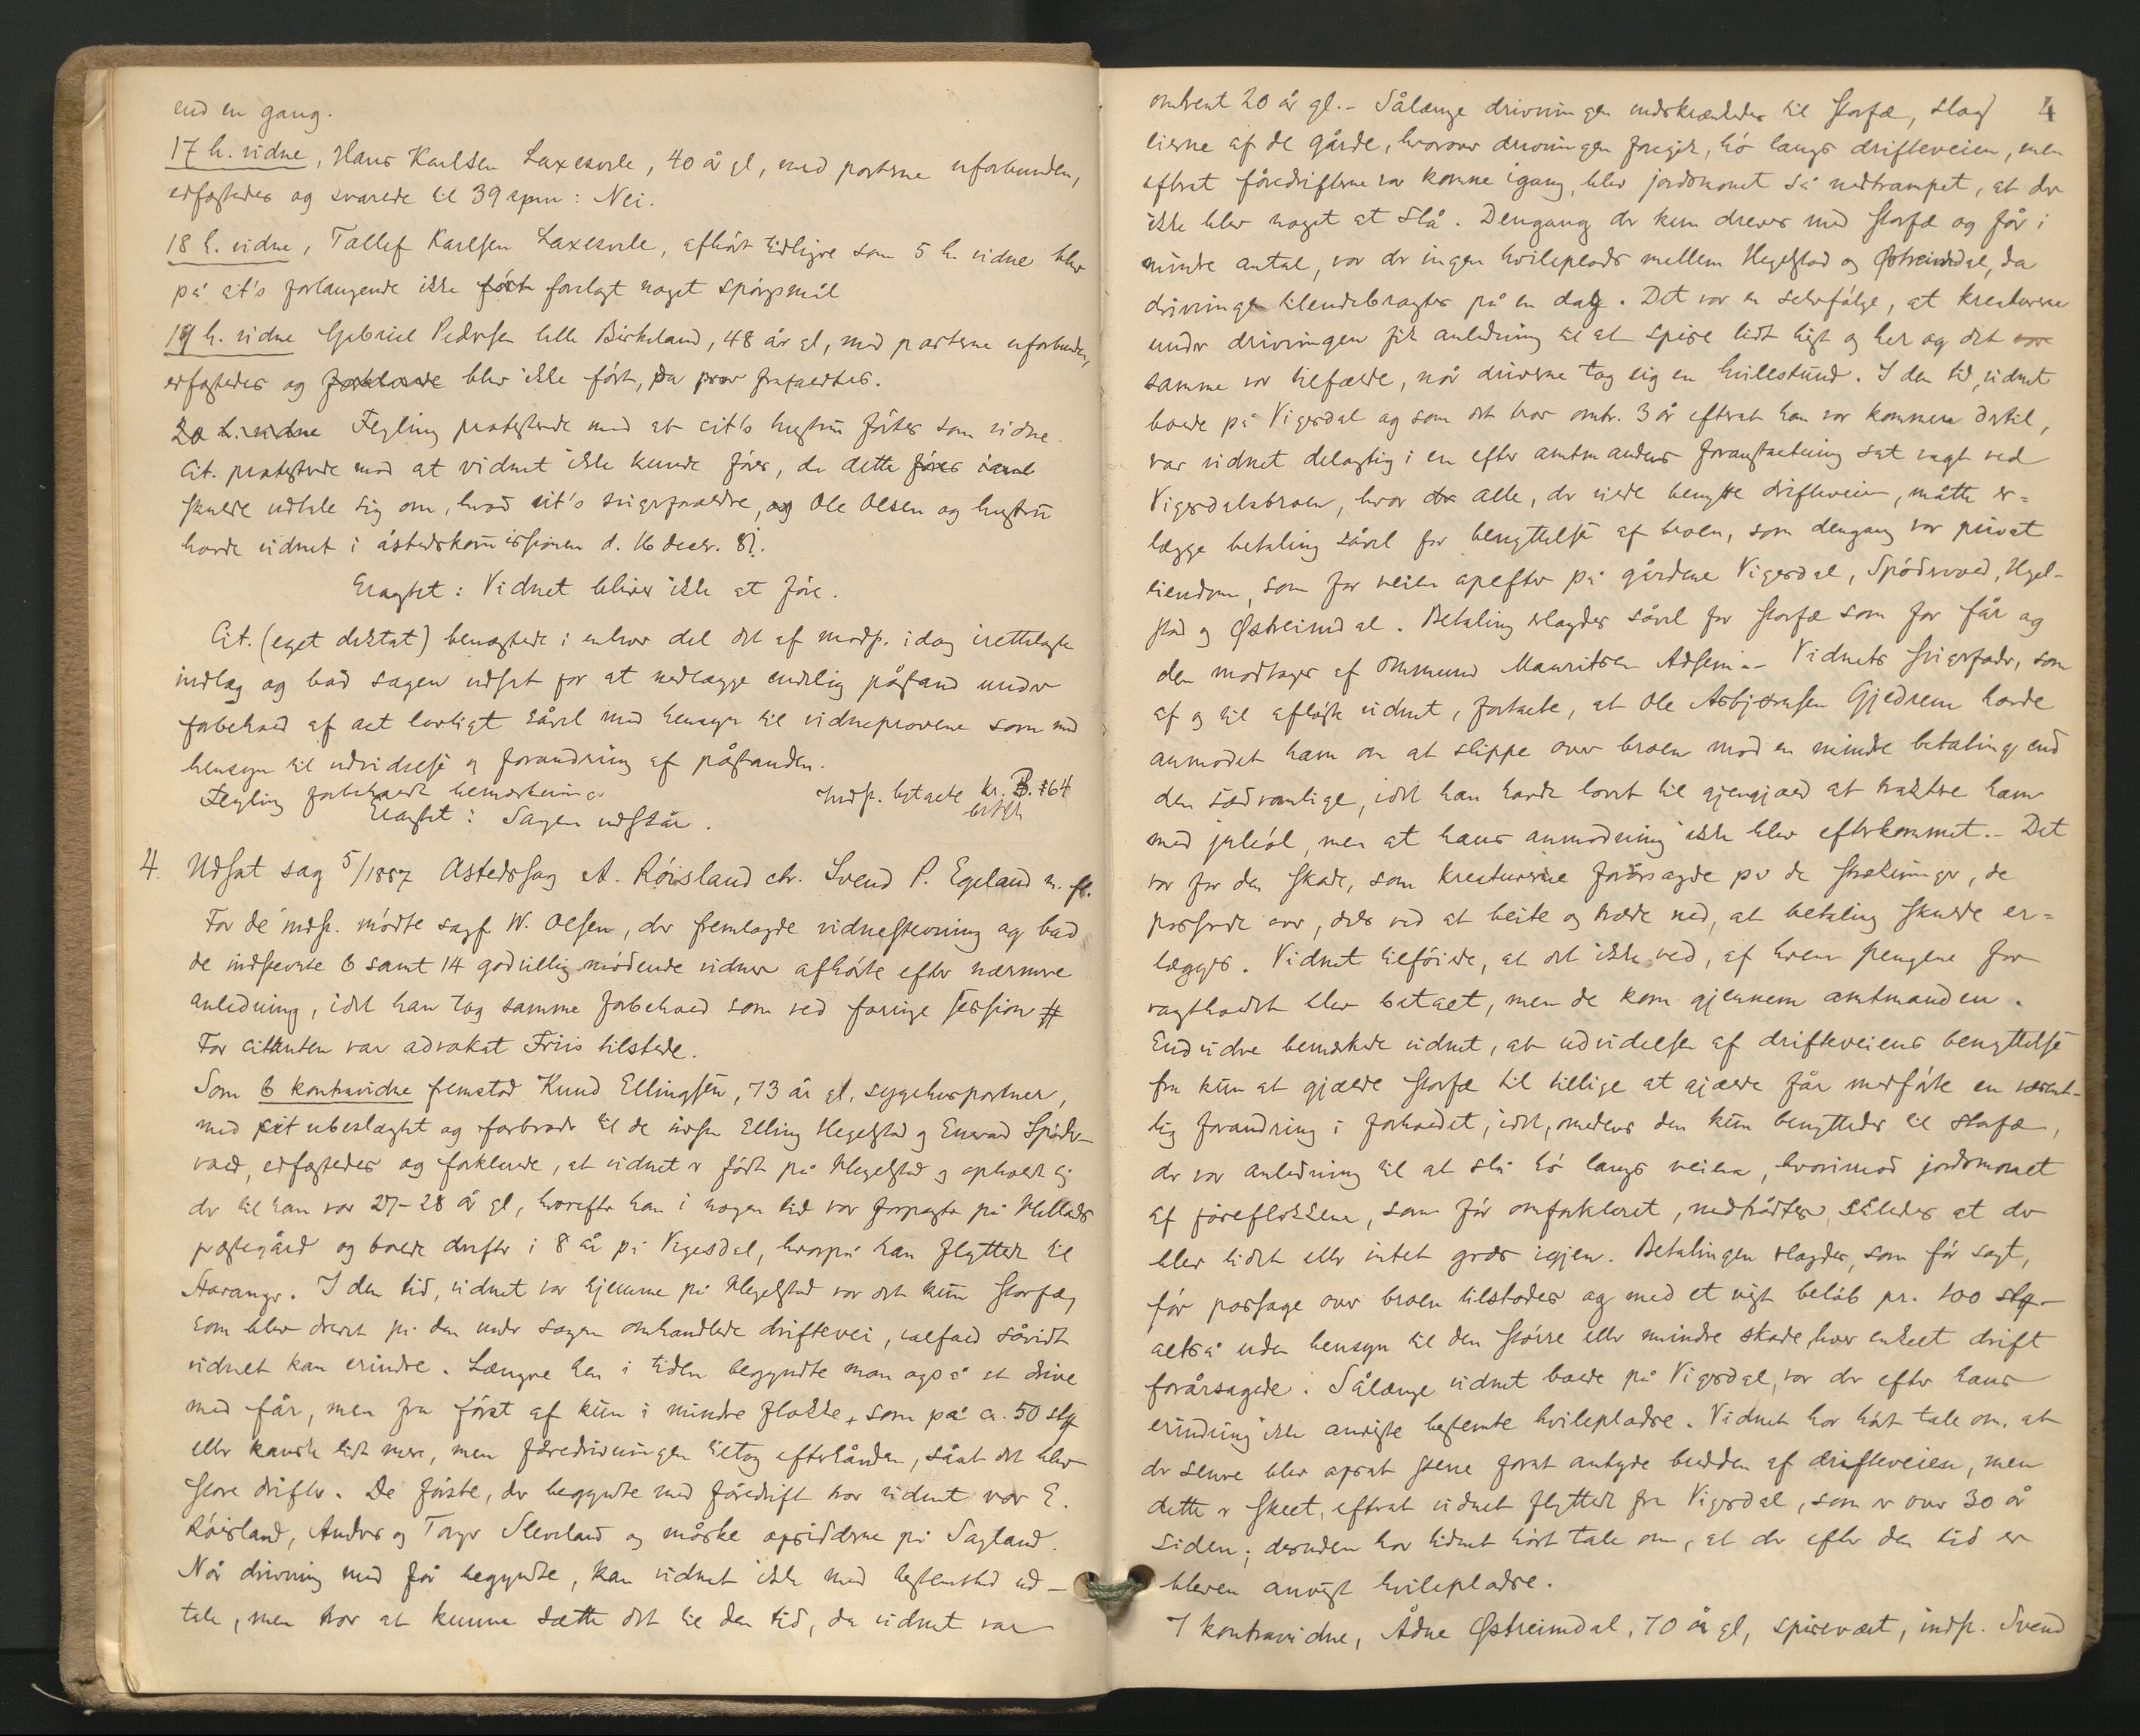 end en gang.
17 h. vidne, Hans Karlsen Laxesvele, 40 år gl, med parterne uforbunden,
edfæstedes og svarede til 39 spm: Nei.
18 h. vidne, Tallef Karlsen Laxesvele, afhørt tidligere som 5 h. vidne blev
på cit's forlangende ikke ført forelagt noget spørgsmål
19 h. vidne Gabriel Pedersen lille Birkeland, 48 år gl, med parterne uforbunden,
edfæstedes og forklarede blev ikke ført, da prov frafaldtes.
20 h. vidne Fegling protesterede mod at cit's hustru førtes som vidne.
Cit. protesterede mod at vidnet ikke kunde føres, da dette føres
skulde udtale sig om, hvad cit's svigerforældre, og Ole Olsen og hustru
havde vidnet i åstedskommissionen d. 16 decbr. 81.
Eragtet: Vidnet bliver ikke at føre.
Cit. (eget diktat) benægtede i enhver del det af modp. idag irettelagte
indlæg og bad sagen udsat for at nedlægge endelig påstand under
forbehold af alt lovligt såvel med hensyn til vidneprovene som med
hensyn til udvidelse og forandring af påstanden.
Fegling forbeholdt bemærkninger
Eragtet: Sagen udstår.
4. Udsat sag 5/1887 Åstedssag A. Røisland ctr. Svend P. Egeland m. fl.
For de indst. mødte sagf W. Olsen, der fremlagde vidnestevning og bad
de indstevnte 6 samt 14 godvillig mødende vidner afhørte efter nærmere
anledning, idet han tog samme forbehold som ved forrige session #
For citanten var advokat Friis tilstede.
Som 6 kontravidne fremstod Knud Ellingsen, 73 år gl, sygehusportner,
med cit ubeslægtet og farbroder til de indst. Elling Hegelstad og Enevald Spøder-
vold, edfæstedes og forklarede, at vidnet er født på Hegelstad og opholdt sig
der til han var 27-28 år gl, hvorefter han i nogen tid var forpagter på Hellands
prestegård og boede derefter i 8 år på Vigesdal, hvorpå han flyttede til
Stavanger. I den tid, vidnet var hjemme på Hegelstad var det kun storfæ,
som blev drevet på den under sagen omhandlede driftevei, ialfald såvidt
vidnet kan erindre. Længere hen i tiden begyndte man også at drive
med får, men fra først af kun i mindre flokke, som på ca. 50 stk
eller kanske lidt mere, men fåredrivningen tiltog efterhånden, såat det blev
store drifter. De første, der begyndte med fåredrift tror vidnet var E.
Røisland, Anders og Torger Sleveland og måske opsidderne på Sagland.
Når drivning med får begyndte, kan vidnet ikke med bestemthed ud-
tale, men tror at kunne sætte det til den tid, da vidnet var
4
omtrent 20 år gl. - Sålænge drivningen indskrænkedes til storfæ, slog
eierne af de gårde, hvorover drivningen foregik, hø langs drifteveien, men
efterat fåredrifterne var komne igang, blev jordsmonnet så nedtrampet, at der
ikke blev noget at slå. Dengang der kun dreves med storfæ og får i
mindre antal, var der ingen hvileplads mellem Hegelstad og Østreimdal, da
drivninge tilendebragtes på en dag. Det var en selvfølge, at kreaturerne
under drivningen fik anledning til at spise lidt hist og her og det var
samme var tilfælde, når driverne tog sig en hvilestund. I den tid, vidnet
boede på Vigesdal og som det tror omtr. 3 år efterat han var kommen dertil,
var vidnet delagtig i en efter amtmandens foranstaltning sat vagt ved
Vigesdalsbroen, hvor der alle, der vilde benytte drifteveien, måtte er-
lægge betaling såvel for benyttelse af broen, som dengang var privat
eiendom, som for veien opefter på gårdene Vigesdal, Spødervold, Hegel-
stad og Østreimdal. Betaling erlagdes såvel for storfæ som for får og
den modtoges af Ommund Mauritsen - Vidnets svigerfader, som
af og til afløste vidnet, fortalte, at Ole Asbjørnsen Gjedrem havde
anmodet ham om at slippe over broen mod en mindre betaling end
den sædvanlige, idet han havde lovet til gjengjæld at traktere ham
med juleøl, men at hans anmodning ikke blev efterkommet. - Det
var for den skade, som kreaturerne forårsagde på de strækninger, de
passerede over, dels ved at beite og træde ned, at betaling skulde er-
lægges. Vidnet tilføiede, at det ikke ved, af hvem pengene for
vagtholdet blev betalt, men de kom gjennem amtmanden.
Endvidere bemærkede vidnet, at udvidelsen af drifteveiens benyttelse
fra kun at gjælde storfæ til tillige at gjælde får medførte en væsent-
lig forandring i forholdet, idet, medens den kun benyttedes til storfæ,
der var anledning til at slå hø langs veien, hvorimod jordsmonnet
af fåreflokkene, som før omforklaret, nedtrådtes, således at der
blev lidet eller intet græs igjen. Betalingen erlagdes, som før sagt,
før passage over broen tilstodes og med et vist beløb pr. 100 stk. -
altså uden hensyn til den større eller mindre skade, hver enkelt drift
forårsagede. Sålænge vidnet boede på Vigesdal, var der efter hans
erindring ikke anviste bestemte hvilepladse. Vidnet har hørt tale om, at
der senere blev opsat stene forat antyde bredden af drifteveien, men
dette er skeet, efterat vidnet flyttede fra Vigesdal, som er over 30 år
siden; desuden har vidnet hørt tale om, at der efter den tid er
bleven anvist hvilepladse.
7 kontravidne, Ådne Østreimdal, 70 år gl, spisevært, indst. Svend